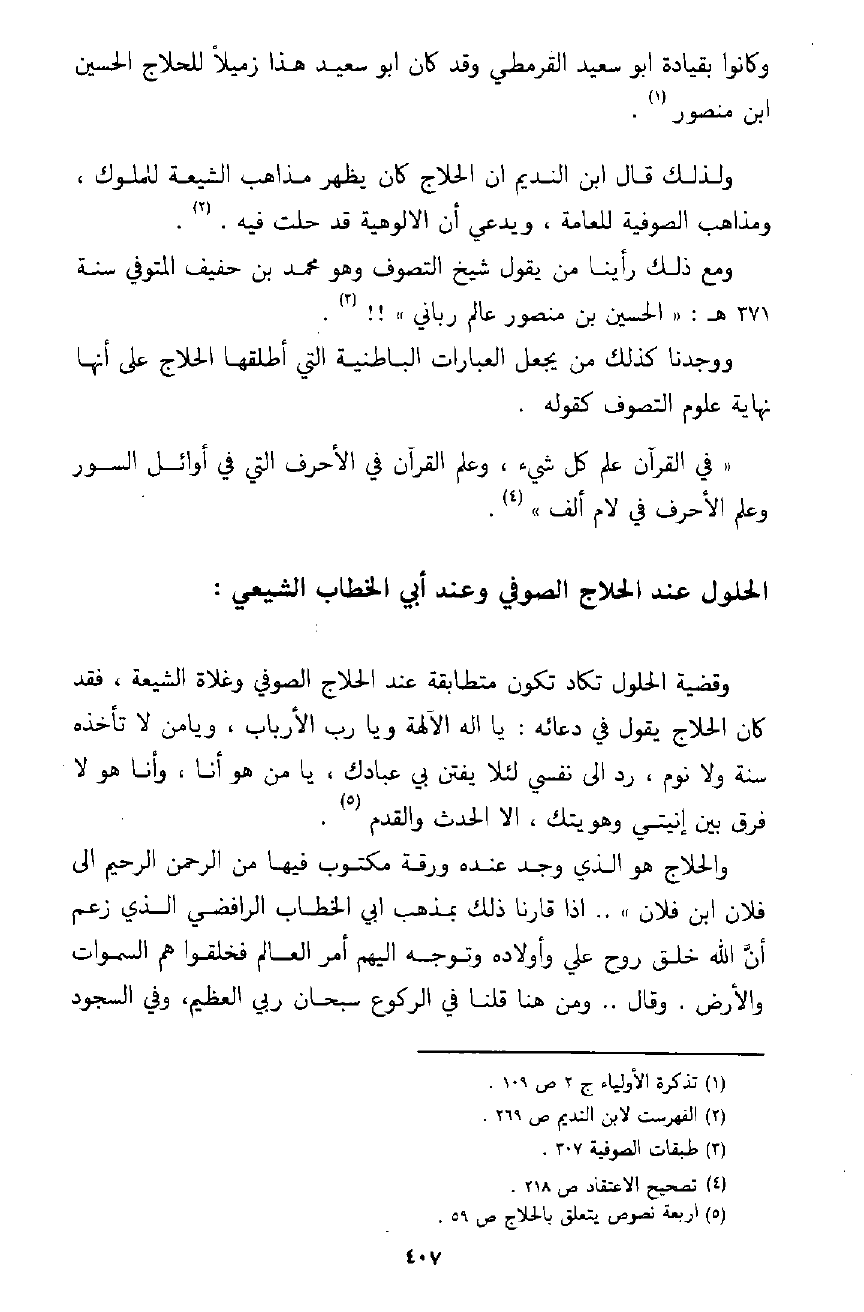 وكانوا بقيادة ابو سعيد القرمطي وقد كان ابو سعيد هذا زميلاً للحلاج الحسين
ابن منصور (١) .
ولذلك قال ابن النديم ان الحلاج كان يظهر مذاهب الشيعة للملوك ،
ومذاهب الصوفية للعامة ، ويدعي أن الالوهية قد حلت فيه . (٢) .
ومع ذلك رأينا من يقول شيخ التصوف وهو محمد بن حفيف المتوفي سنة
٣٧١ هـ : « الحسين بن منصور عالم رباني » !! (٣) .
ووجدنا كذلك من يجعل العبارات الباطنية التي أطلقها الحلاج على أنها
نهاية علوم التصوف كقوله .
« في القرآن علم كل شيء ، وعلم القرآن في الأحرف التي في أوائل السور
وعلم الأحرف في لام ألف » (٤) .
الحلول عند الحلاج الصوفي وعند أبي الخطاب الشيعي :
وقضية الحلول تكاد تكون متطابقة عند الحلاج الصوفي وغلاة الشيعة ، فقد
كان الحلاج يقول في دعائه : يا اله الآلهة ويا رب الأرباب ، ويامن لا تأخذه
سنة ولا نوم ، رد الى نفسي لئلا يفتن بي عبادك ، يا من هو أنا ، وأنا هو لا
فرق بين إنيتي وهويتك ، الا الحدث والقدم (٥) .
والحلاج هو الذي وجد عنده ورقة مكتوب فيها من الرحمن الرحيم الى
فلان ابن فلان » .. اذا قارنا ذلك بمذهب ابي الخطاب الرافضي الذي زعم
أنَّ الله خلق روح علي وأولاده وتوجه اليهم أمر العالم فخلقوا هم السموات
والأرض . وقال .. ومن هنا قلنا في الركوع سبحان ربي العظيم، وفي السجود
(١) تذكرة الأولياء ج ٢ ص ١٠٩ .
(٢) الفهرست لابن النديم ص ٢٦٩ .
(٣) طبقات الصوفية ٣٠٧ .
(٤) تصحيح الاعتقاد ص ٢١٨ .
(٥) اربعة نصوص يتعلق بالحلاج ص ٥٩ .
٤٠٧